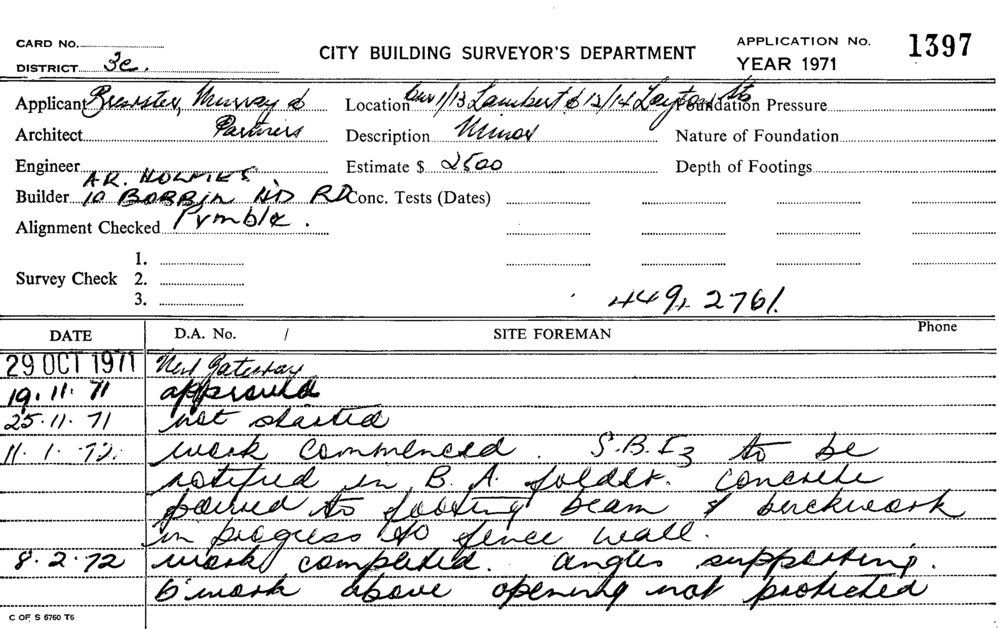 CARD No.
DISTRICT 3c.
CITY BUILDING SURVEYOR'S DEPARTMENT
APPLICATION No. 1397
YEAR 1971
Applicant Brewster, Murray &
Location Cnr 1/13 Lambert & 12/14 Layton Sts
Foundation Pressure
Architect Partners
Description Minor
Nature of Foundation
Engineer
Estimate $ 2500
Depth of Footings
A.R. HOLMES.
Builder 10 BOBBIN HD RD
Conc. Tests (Dates)
Alignment Checked Pymble.
1.
Survey Check 2.
3.
449 2761.
DATE D.A. No. / SITE FOREMAN Phone
29 OCT 1971 New Gateway
19.11.71 approved
25.11.71 not started
11.1.72. work commenced. S.B.I3 to be
notified in B.A. folder. Concrete
poured to footing beam & brickwork
in progress to fence wall.
8.2.72 work completed. angles supporting.
b'work above opening not protected
C OF S 6760 T6